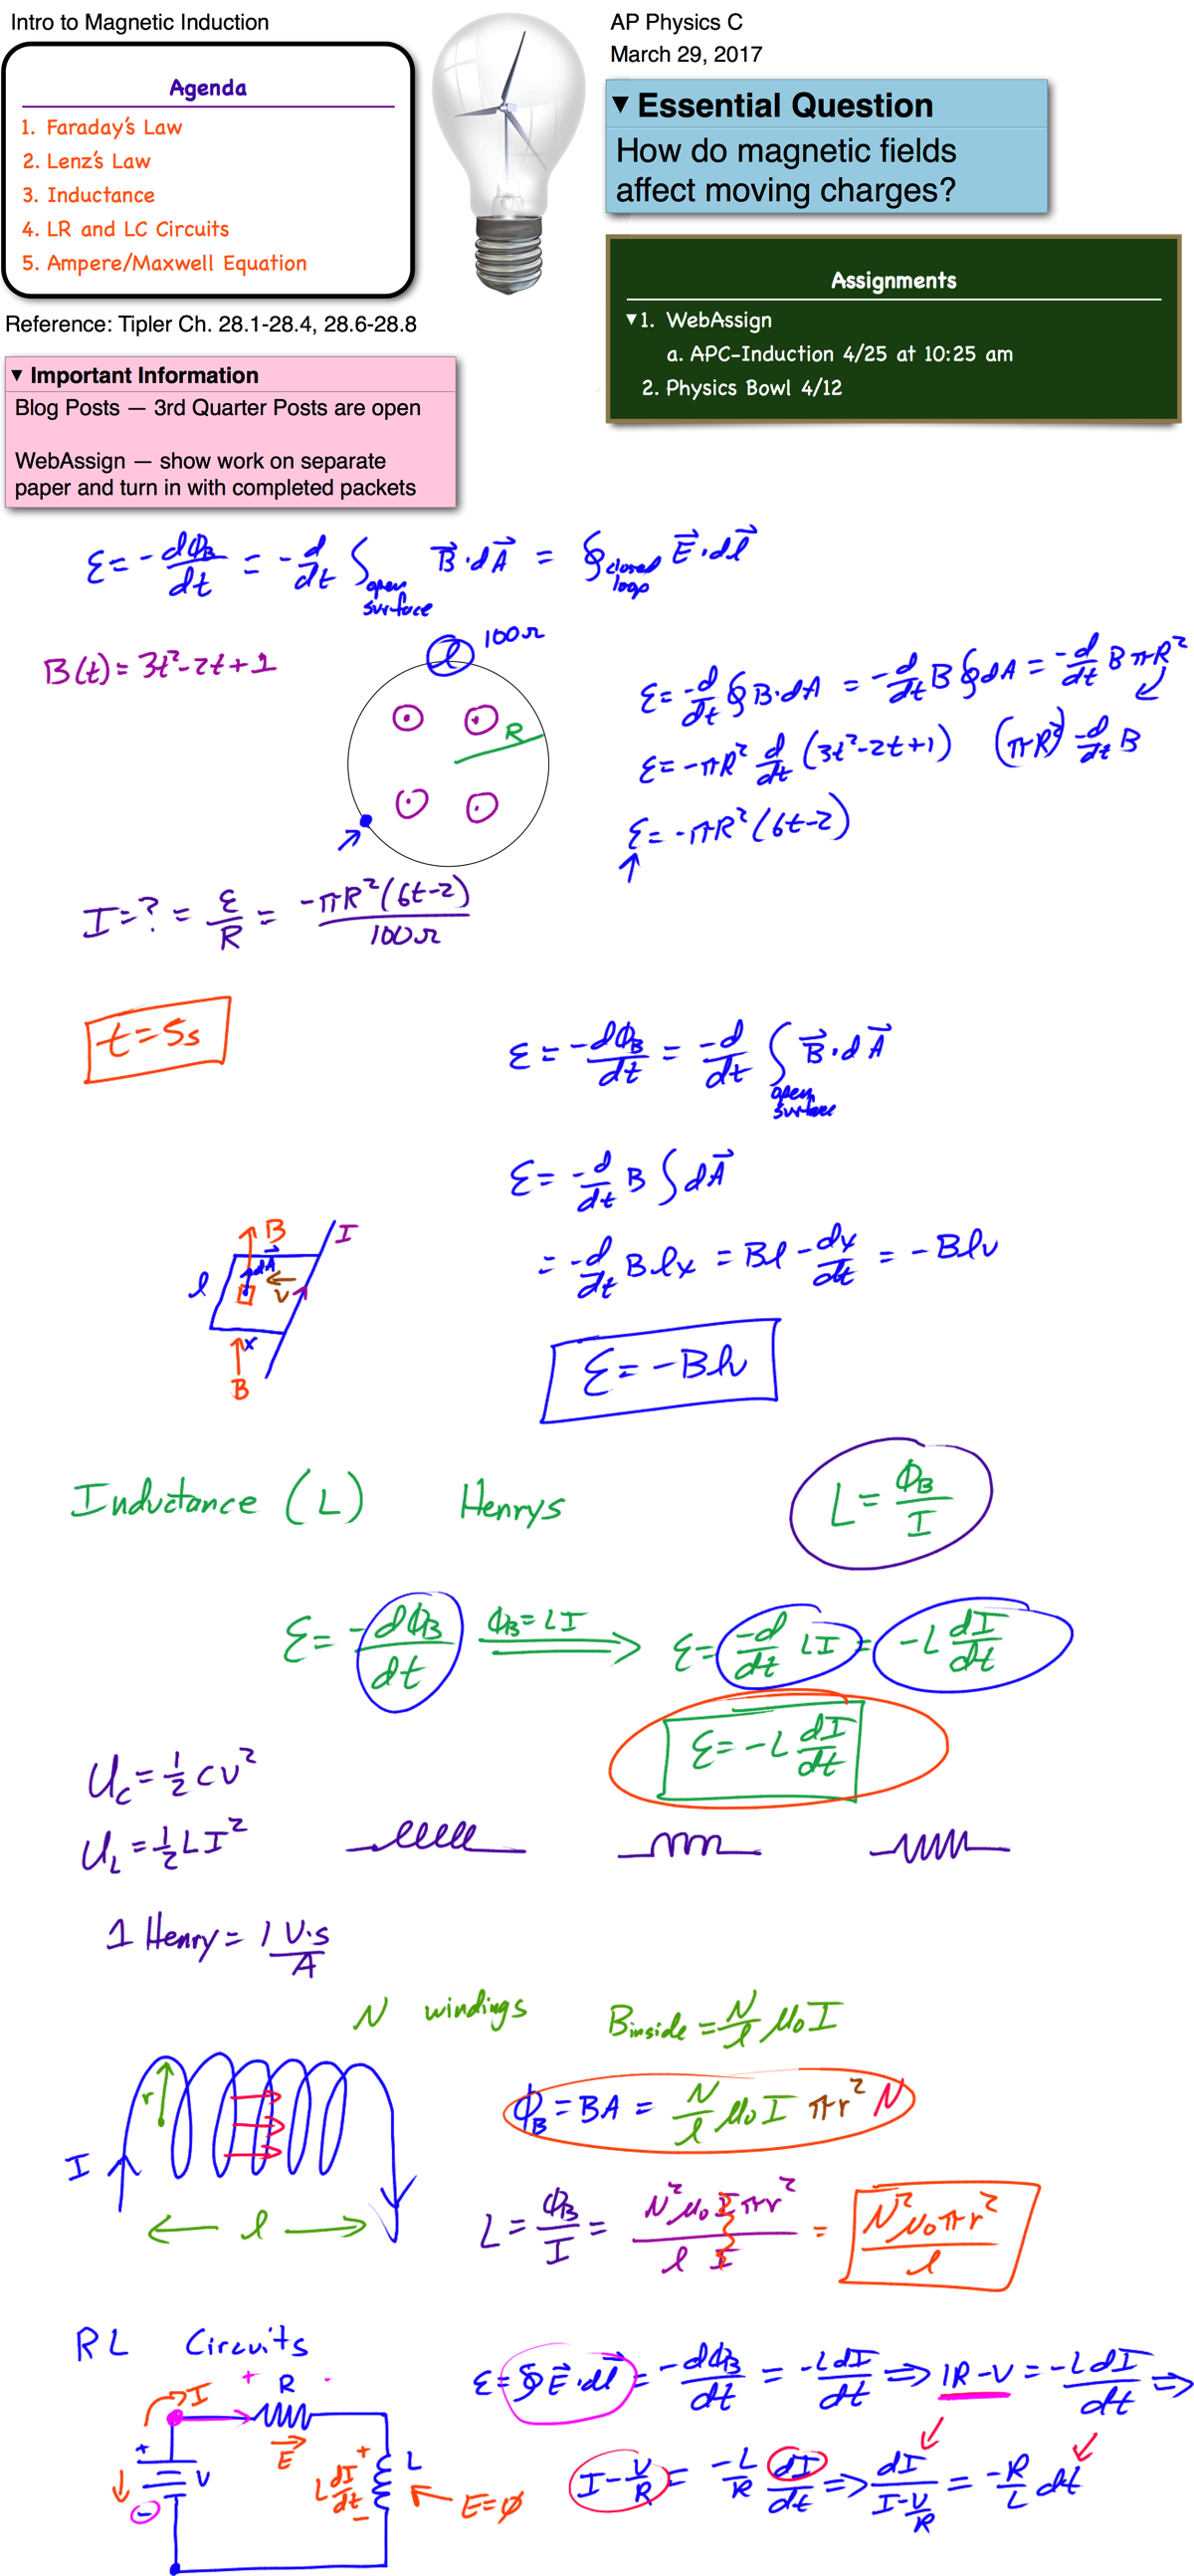 Intro to Magnetic Induction
AP Physics C
March 29, 2017
Agenda
1. Faraday's Law
2. Lenz's Law
3. Inductance
4. LR and LC Circuits
5. Ampere/Maxwell Equation
▼ Essential Question
How do magnetic fields
affect moving charges?
Assignments
▼1. WebAssign
a. APC-Induction 4/25 at 10:25 am
2. Physics Bowl 4/12
Reference: Tipler Ch. 28.1-28.4, 28.6-28.8
▼ Important Information
Blog Posts — 3rd Quarter Posts are open
WebAssign — show work on separate
paper and turn in with completed packets
ℰ = -dΦB/dt = -d/dt ∫open surface B⃗·dA⃗ = ∮closed loop E⃗·dl⃗
B(t) = 3t²-2t+1
100Ω
R
ℰ = -d/dt ∮B·dA = -d/dt B∮dA = -d/dt BπR²
ℰ = -πR² d/dt (3t²-2t+1) (πR²) -d/dt B
ℰ = -πR²(6t-2)
I = ? = ℰ/R = -πR²(6t-2)/100Ω
t = 5s
ℰ = -dΦB/dt = -d/dt ∫open surface B⃗·dA⃗
ℰ = -d/dt B ∫dA⃗
= -d/dt Blx = Bl -dx/dt = -Blv
B I
dA⃗
l v
x
B
ℰ = -Blv
Inductance (L) Henrys L = ΦB/I
ℰ = -dΦB/dt ΦB = LI ⟹ ℰ = -d/dt LI = -L dI/dt
ℰ = -L dI/dt
Uc = ½CV²
UL = ½LI²
1 Henry = 1 V·s/A
N windings Binside = N/l μ₀I
r
I
l
ΦB = BA = N/l μ₀I πr² N
L = ΦB/I = N²μ₀Iπr²/l I = N²μ₀πr²/l
RL Circuits
ℰ = ∮E⃗·dl⃗ = -dΦB/dt = -L dI/dt ⟹ IR-V = -L dI/dt ⟹
I-V/R = -L/R dI/dt ⟹ dI/(I-V/R) = -R/L dt
+ R -
I
E
+ V -
+ L dI/dt -
L
E=∅